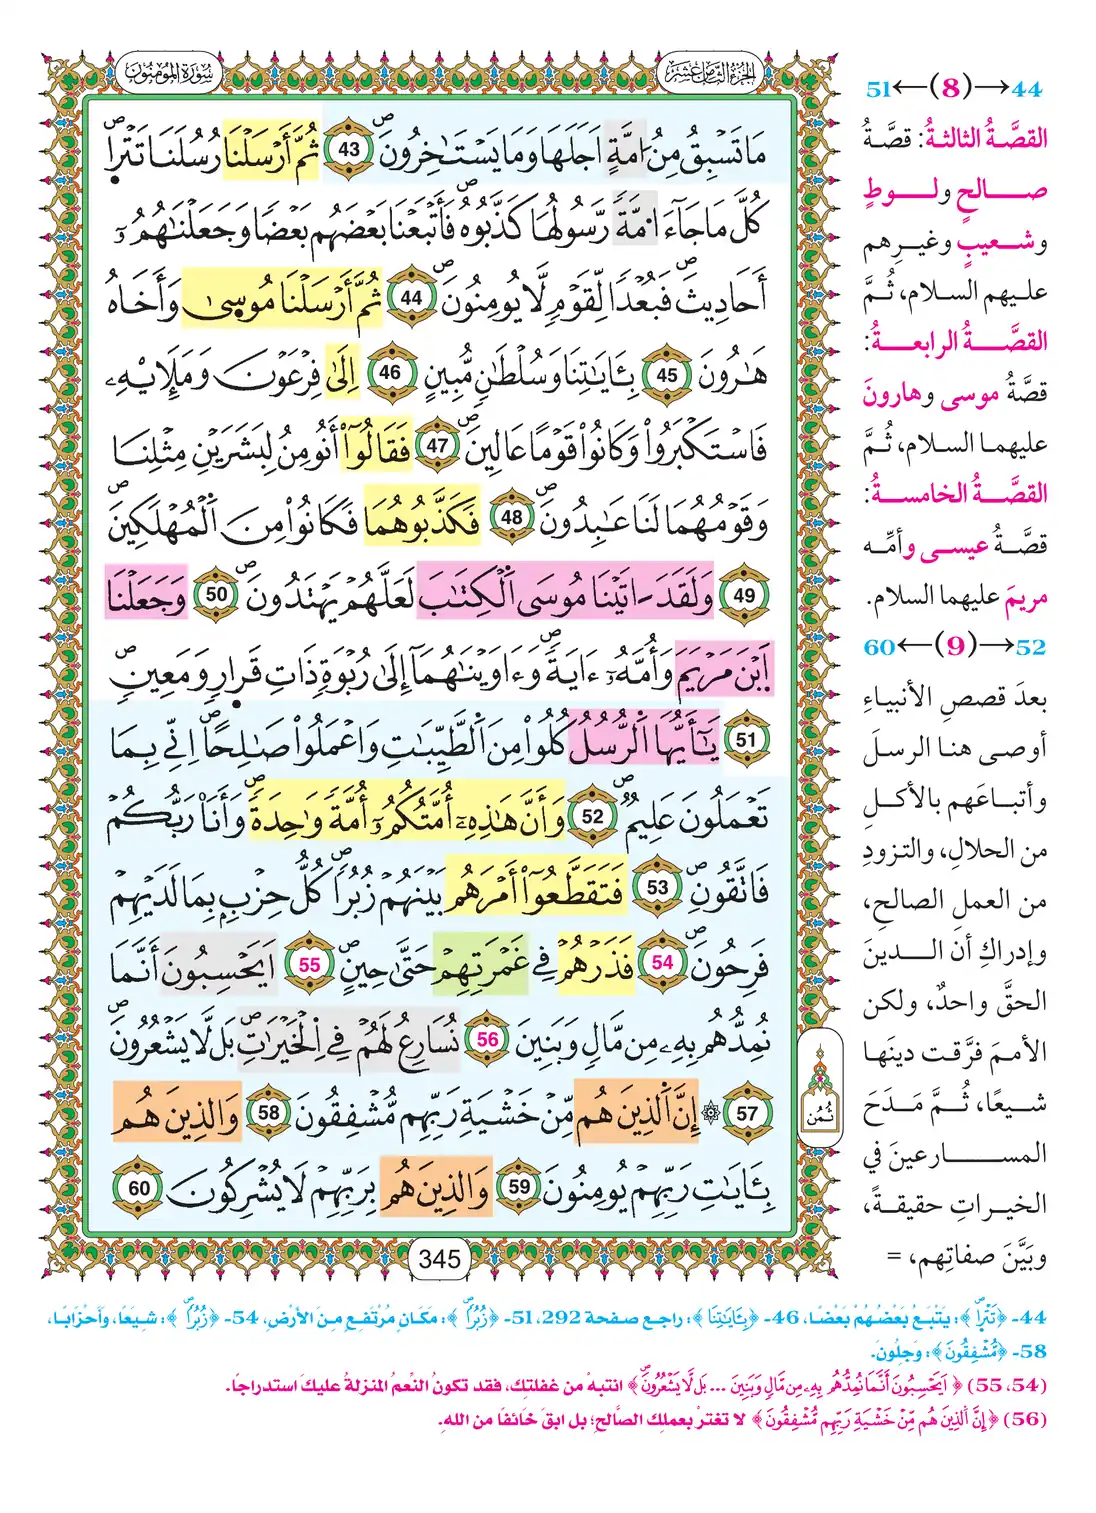 سورة المومنون
الجزء الثامن عشر
مَا تَسۡبِقُ مِنُ امَّةٍ اَجَلَهَا وَمَا يَسۡتَٰخِرُونَۖ 43 ثُمَّ أَرۡسَلۡنَا رُسُلَنَا تَتۡرٗاۖ
كُلَّ مَا جَآءَ امَّةٗ رَّسُولُهَا كَذَّبُوهُۖ فَأَتۡبَعۡنَا بَعۡضَهُم بَعۡضٗا وَجَعَلۡنَٰهُمُۥٓ
أَحَادِيثَۖ فَبُعۡدٗا لِّقَوۡمٖ لَّا يُومِنُونَۖ 44 ثُمَّ أَرۡسَلۡنَا مُوسۭيٰ وَأَخَاهُ
هَٰرُونَ 45 بِـَٔايَٰتِنَا وَسُلۡطَٰنٖ مُّبِينٍ 46 اِلَىٰ فِرۡعَوۡنَ وَمَلَإِيْهِۦ
فَاسۡتَكۡبَرُواْ وَكَانُواْ قَوۡمًا عَالِينَۖ 47 فَقَالُوٓاْ أَنُومِنُ لِبَشَرَيۡنِ مِثۡلِنَا
وَقَوۡمُهُمَا لَنَا عَٰبِدُونَۖ 48 فَكَذَّبُوهُمَا فَكَانُواْ مِنَ اَلۡمُهۡلَكِينَۖ
49 وَلَقَدَ ـ اتَيۡنَا مُوسَى اَلۡكِتَٰبَ لَعَلَّهُمۡ يَهۡتَدُونَۖ 50 وَجَعَلۡنَا
اَبۡنَ مَرۡيَمَ وَأُمَّهُۥٓ ءَايَةٗۖ وَءَاوَيۡنَٰهُمَآ إِلَىٰ رُبۡوَةٖ ذَاتِ قَرَارٖ وَمَعِينٖۖ
51 يَٰٓأَيُّهَا اَلرُّسُلُ كُلُواْ مِنَ اَلطَّيِّبَٰتِ وَاعۡمَلُواْ صَٰلِحًاۖ اِنِّي بِمَا
تَعۡمَلُونَ عَلِيمٞۖ 52 وَأَنَّ هَٰذِهِۦٓ أُمَّتُكُمُۥٓ أُمَّةٗ وَٰحِدَةٗۖ وَأَنَا۠ رَبُّكُمۡ
فَاتَّقُونِۖ 53 فَتَقَطَّعُوٓاْ أَمۡرَهُم بَيۡنَهُمۡ زُبُرٗاۖ كُلُّ حِزۡبِۭ بِمَا لَدَيۡهِمۡ
فَرِحُونَۖ 54 فَذَرۡهُمۡ فِي غَمۡرَتِهِمۡ حَتَّىٰ حِينٍۖ 55 اَيَحۡسِبُونَ أَنَّمَا
نُمِدُّهُم بِهِۦ مِن مَّالٖ وَبَنِينَ 56 نُسَارِعُ لَهُمۡ فِي اِلۡخَيۡرَٰتِۖ بَل لَّا يَشۡعُرُونَۖ
57 ۞ إِنَّ اَلذِينَ هُم مِّنۡ خَشۡيَةِ رَبِّهِم مُّشۡفِقُونَ 58 وَالذِينَ هُم
بِـَٔايَٰتِ رَبِّهِمۡ يُومِنُونَ 59 وَالذِينَ هُم بِرَبِّهِمۡ لَا يُشۡرِكُونَ 60
ثُمُن
345
44→(8)←51
القصَّةُ الثالثةُ: قصَّةُ
صالحٍ ولوطٍ
وشعيبٍ وغيرِهم
عليهم السلام، ثُمَّ
القصَّةُ الرابعةُ:
قصَّةُ موسى وهارونَ
عليهما السلام، ثُمَّ
القصَّةُ الخامسةُ:
قصَّةُ عيسى وأمِّه
مريمَ عليهما السلام.
52→(9)←60
بعدَ قصصِ الأنبياءِ
أوصى هنا الرسلَ
وأتباعَهم بالأكلِ
من الحلالِ، والتزودِ
من العملِ الصالحِ،
وإدراكِ أن الدينَ
الحقَّ واحدٌ، ولكن
الأممَ فرَّقت دينَها
شيعًا، ثُمَّ مَدَحَ
المسارعينَ في
الخيراتِ حقيقةً،
وبَيَّنَ صفاتِهم، =
44- ﴿تَتۡرٗاۖ﴾: يَتْبَعُ بَعْضُهُمْ بَعْضًا، 46- ﴿بِـَٔايَٰتِنَا﴾: راجع صفحة 292، 51- ﴿زُبُرٗاۖ﴾: مَكَانٍ مُرْتَفِعٍ مِنَ الأَرْضِ، 54- ﴿زُبُرٗاۖ﴾: شِيَعًا، وَأَحْزَابًا،
58- ﴿مُّشۡفِقُونَ﴾: وَجِلُونَ.
(54، 55) ﴿اَيَحۡسِبُونَ أَنَّمَا نُمِدُّهُم بِهِۦ مِن مَّالٖ وَبَنِينَ ... بَل لَّا يَشۡعُرُونَۖ﴾ انتبهْ من غفلتِك، فقد تكونُ النِّعمُ المنزلةُ عليكَ استدراجًا.
(56) ﴿إِنَّ اَلذِينَ هُم مِّنۡ خَشۡيَةِ رَبِّهِم مُّشۡفِقُونَ﴾ لا تغترَّ بعملِك الصَّالحِ؛ بل ابقَ خَائفًا من اللهِ.